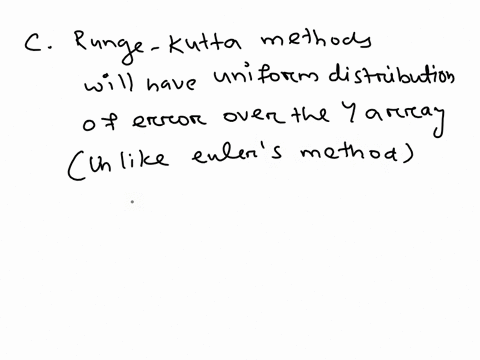 C. Runge-Kutta methods
will have uniform distribution
of error over the Y array
(Unlike euler's method)